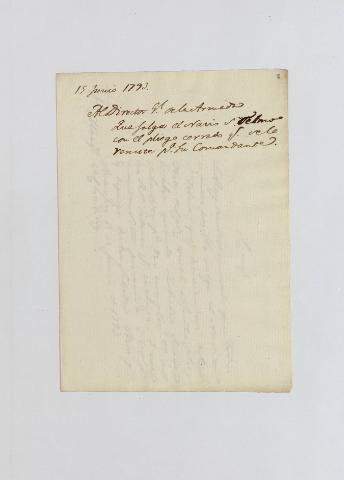 15 Junio 1793.
Al Director Gl. de la Armada
Que salga el Navio Sn. Telmo
con el pliego cerrado qe. se le
remite pa. su Comandante.